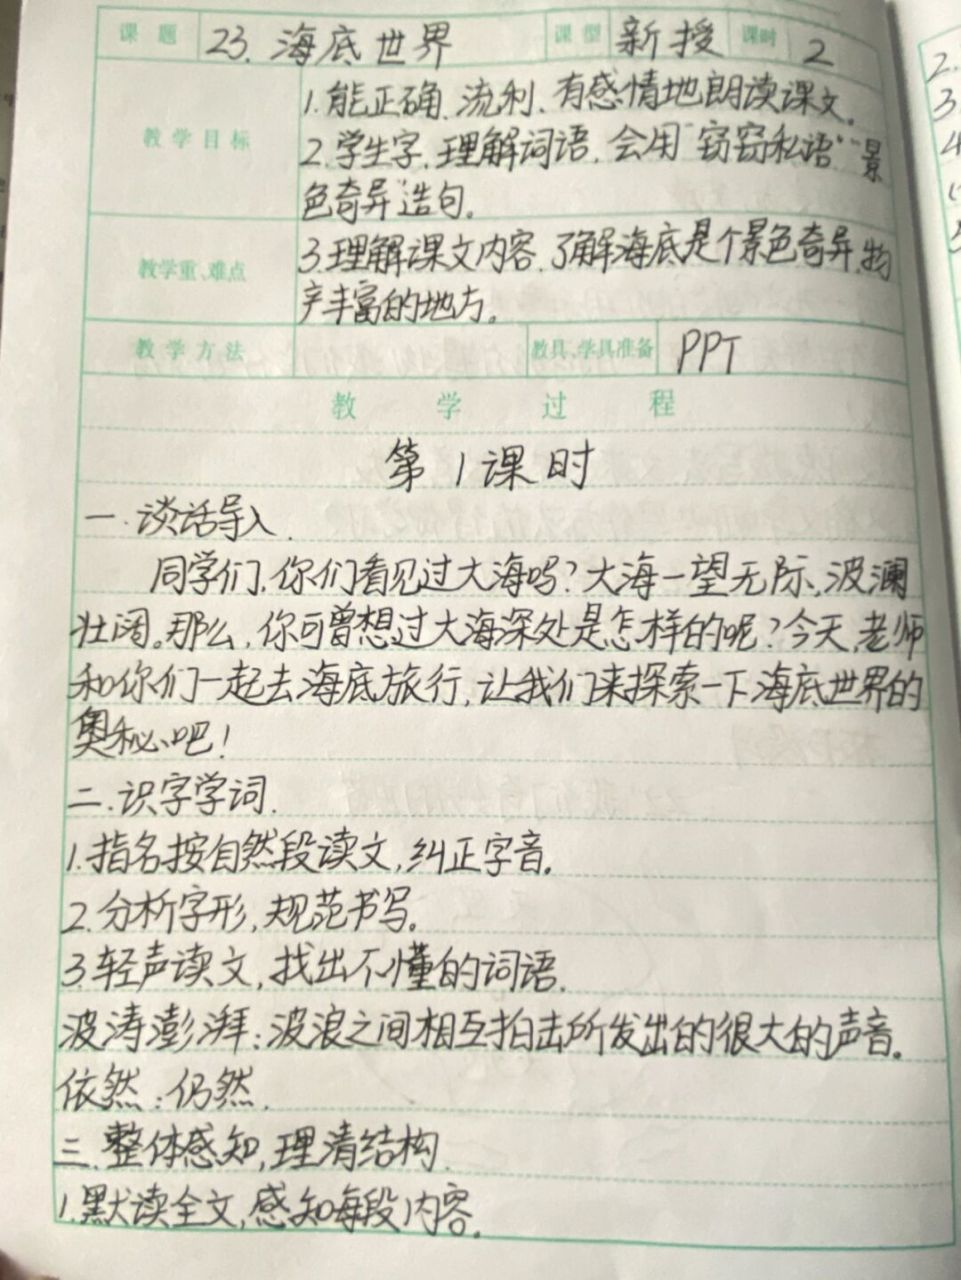 课题 23. 海底世界 课型 新授 课时 2
1.能正确、流利、有感情地朗读课文。
教学目标 2.学生字,理解词语,会用"窃窃私语""景
色奇异"造句。
教学重、难点 3.理解课文内容,了解海底是个景色奇异,物
产丰富的地方。
教学方法 教具、学具准备 PPT
教学过程
第1课时
一.谈话导入.
同学们,你们看见过大海吗?大海一望无际,波澜
壮阔。那么,你可曾想过大海深处是怎样的呢?今天,老师
和你们一起去海底旅行,让我们来探索一下海底世界的
奥秘吧!
二.识字学词.
1.指名按自然段读文,纠正字音。
2.分析字形,规范书写。
3.轻声读文,找出不懂的词语.
波涛澎湃:波浪之间相互拍击所发出的很大的声音。
依然:仍然.
三.整体感知,理清结构.
1.默读全文,感知每段内容。